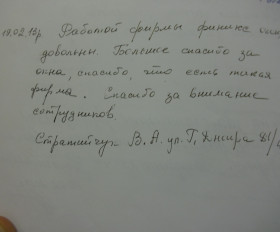 19.02.13г. Работой фирмы финикс
довольны. Большое спасибо за
окна, спасибо, что есть такая
фирма. Спасибо за внимание
сотрудников.
В. А. ул. Г. Димитрова